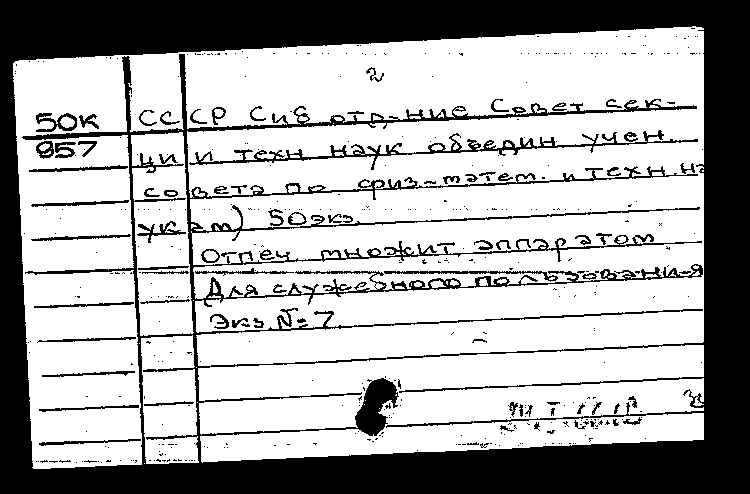 2
50К СССР Сиб отд-ние Совет сек-
857 ции и техн наук объедин учен.
совета по физ-матем. и техн. на
укам) 50экз.
Отпеч. множит. аппаратом
Для служебного пользования
Экз. №7.